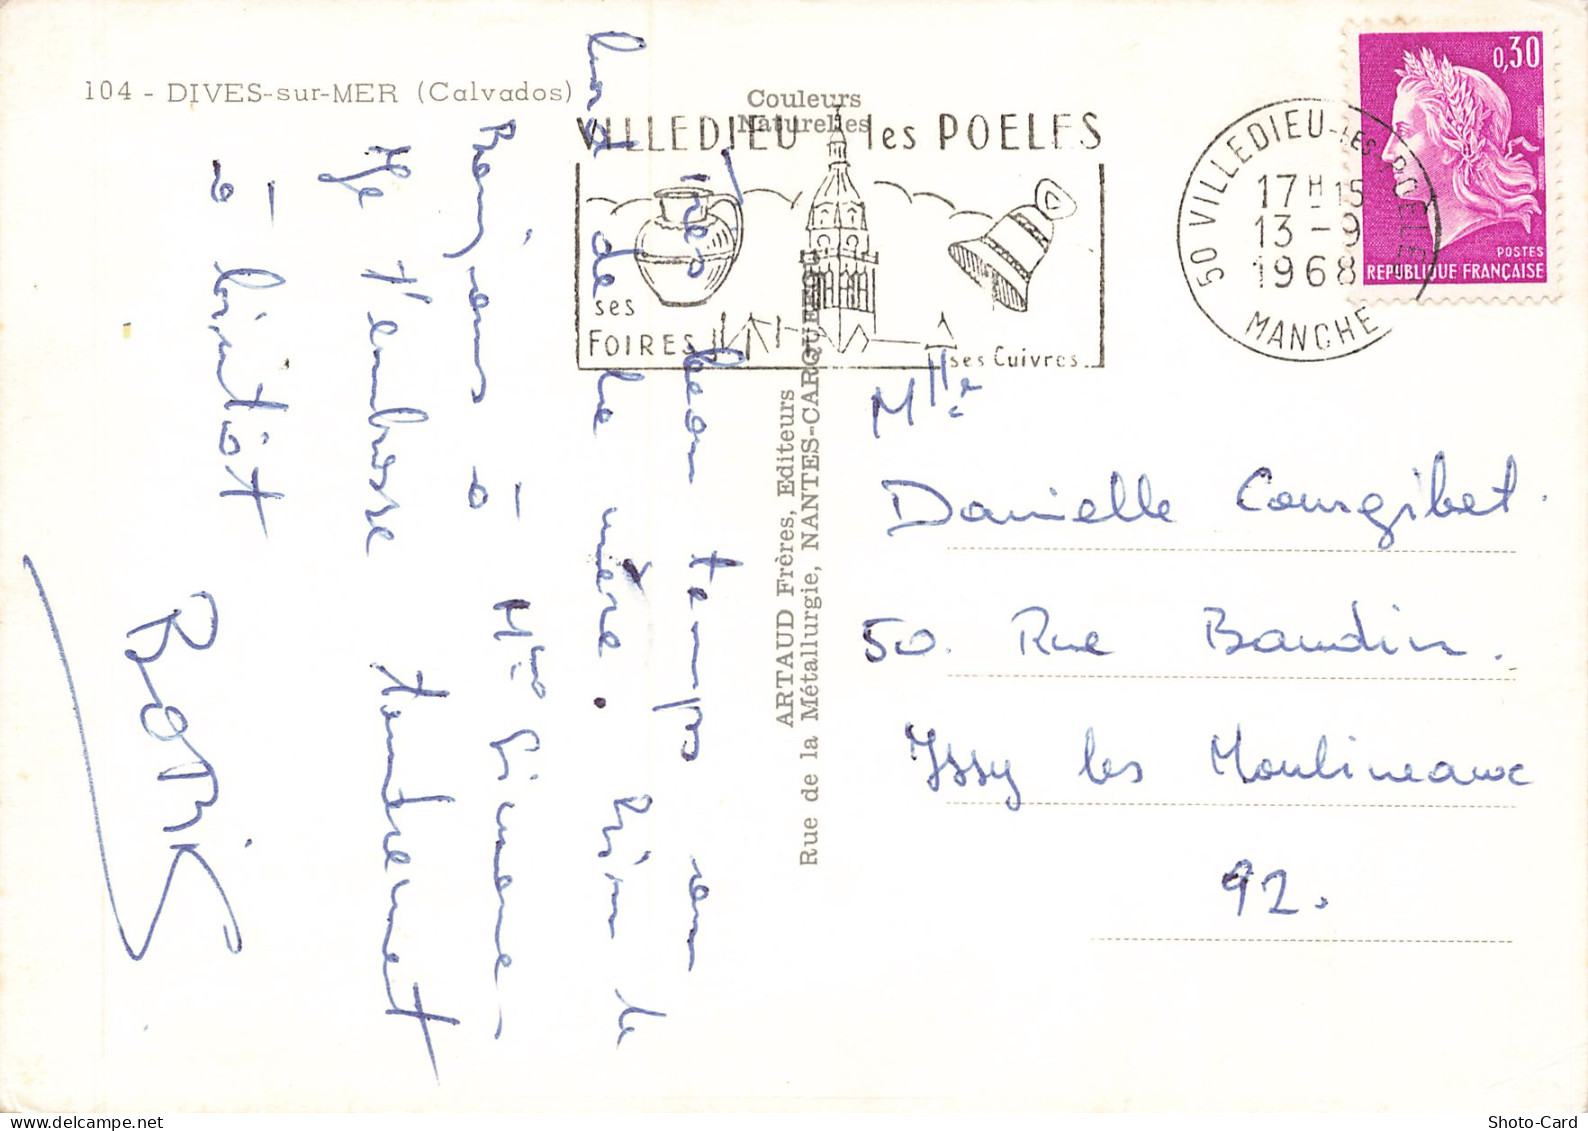 104 - DIVES-sur-MER (Calvados)
Couleurs
Naturelles
VILLEDIEU les POELES
ses
FOIRES
ses Cuivres
50 VILLEDIEU-LES-POELES
17 H 15
13 - 9
1968
MANCHE
0,30
POSTES
REPUBLIQUE FRANÇAISE
ARTAUD Frères, Editeurs
Rue de la Métallurgie, NANTES-CARQUEFOU
Très beau temps au
bord de la mère. Bien le
Bonjour à Mme Simone
Je t'embrasse tendrement
à bientôt
BORIS
Mlle
Danielle Courgibet.
50. Rue Baudin.
Issy les Moulineaux
92.
Shoto-Card